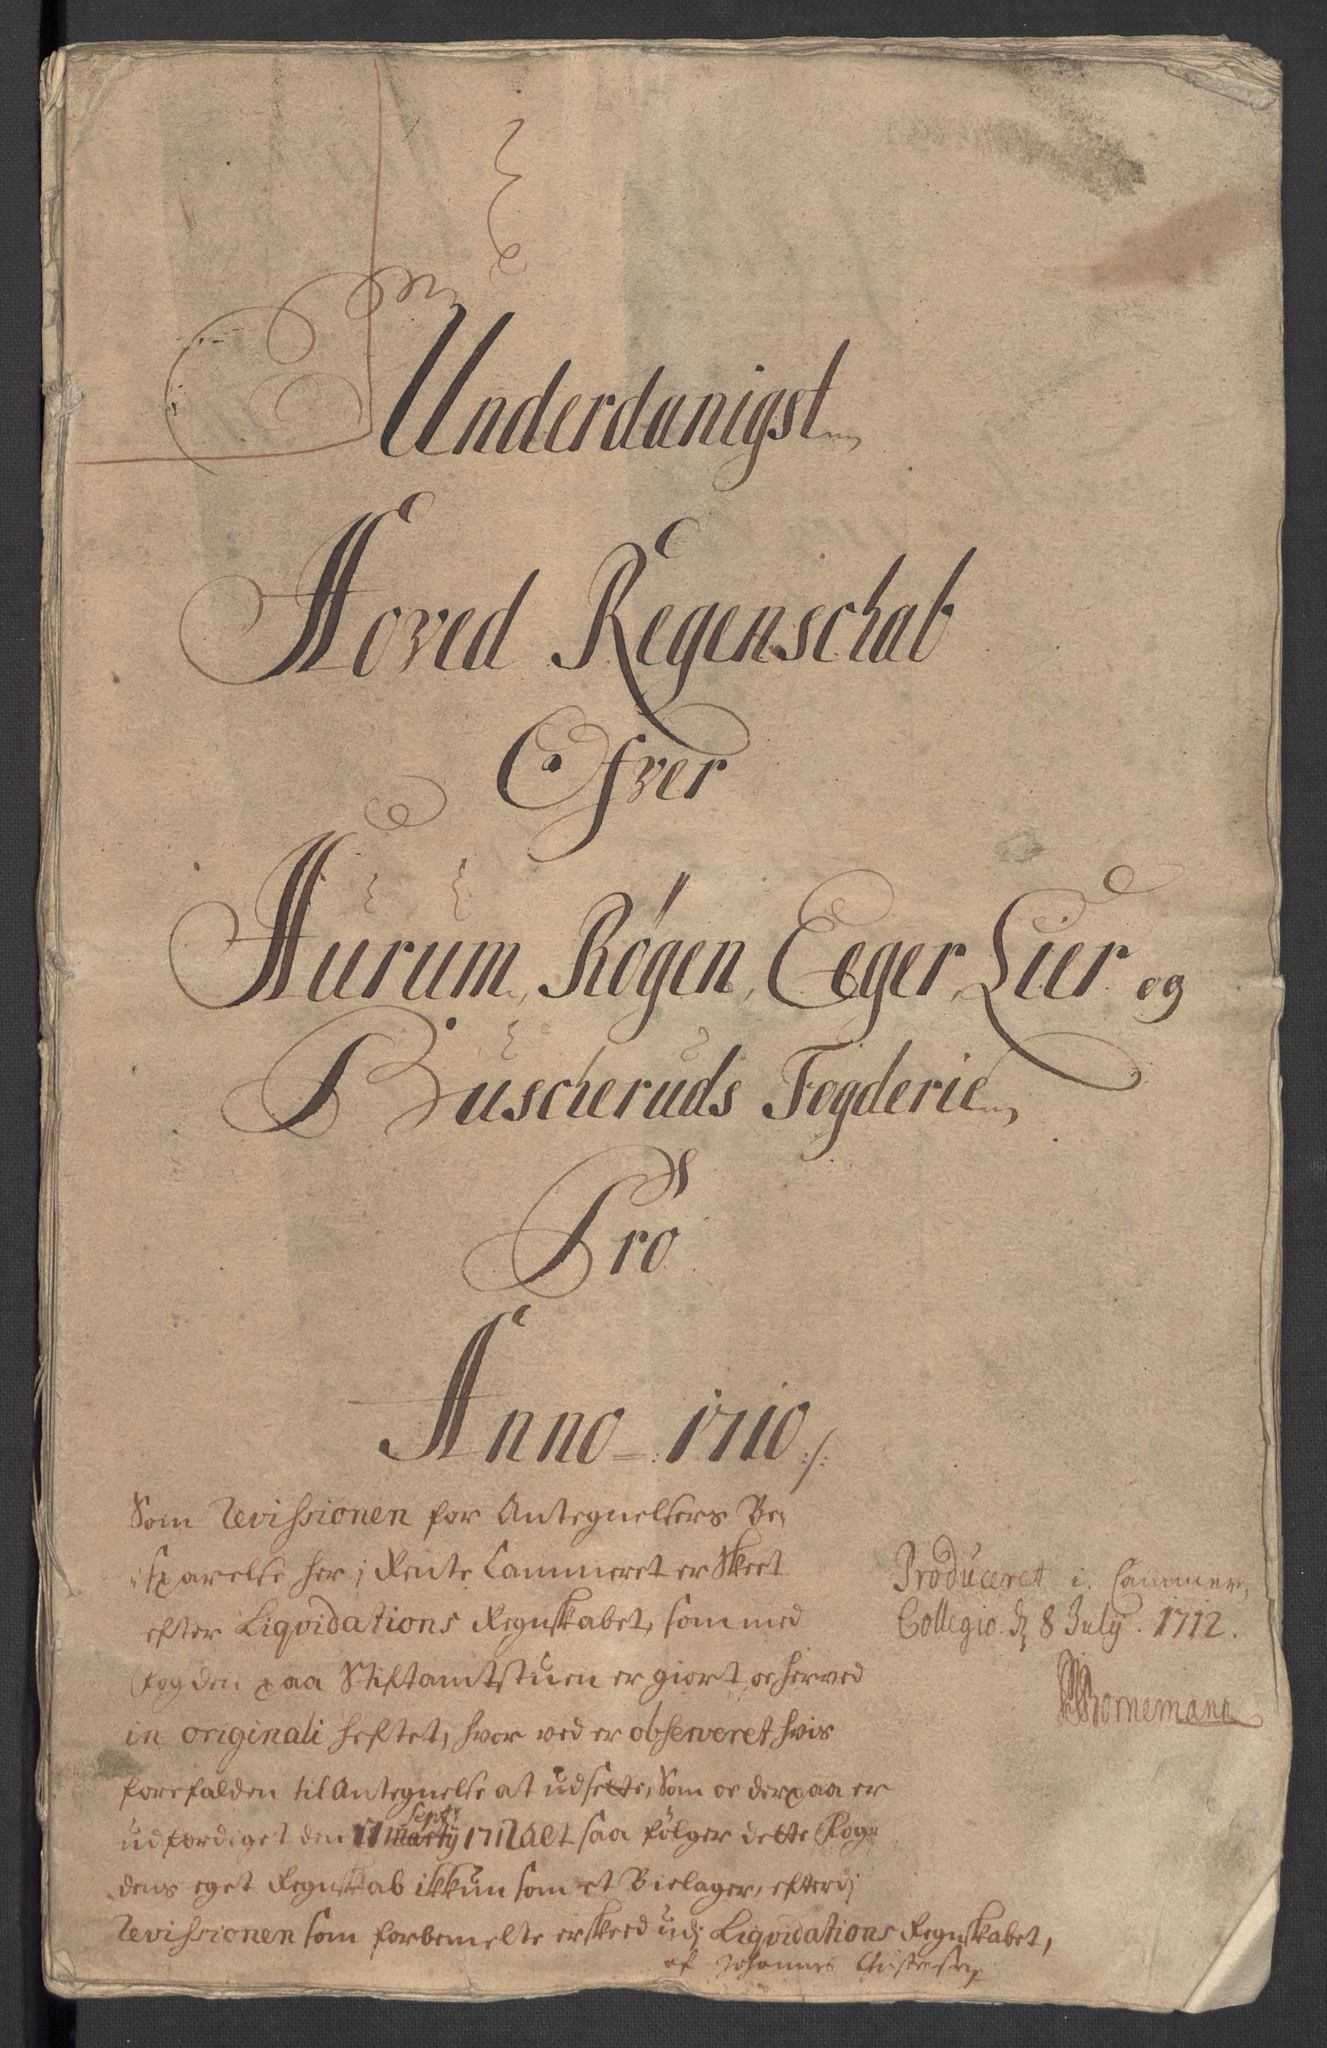 Underdanigst
Hoved Regenschab
Ofver
Hurum, Røgen, Eeger, Lier og
Buscheruds Fogderie
Pro
Anno 1710
Som Revissionen for Antegnelsers Be-
sparelse her i Rente Cammeret er Skeet
efter Liqvidations Regnskabet, som med
fogden paa Stiftamtstuen er giort, oc herved
in originali heftet, hvor ved er observeret hvis
forefalden til Antegnelse at udsette, Som oc derpaa er
udfærdiget den 17 Martij septr 1712 alt saa følger dette Fog-
dens eget Regnskab ikkun som et Bielager, efterdj
Revissionen som forbemelte er skeed udj Liqvidations Regnskabet,
af Johannes
Produceret i Cammer
Collegio d 8 July 1712.
Bornemann